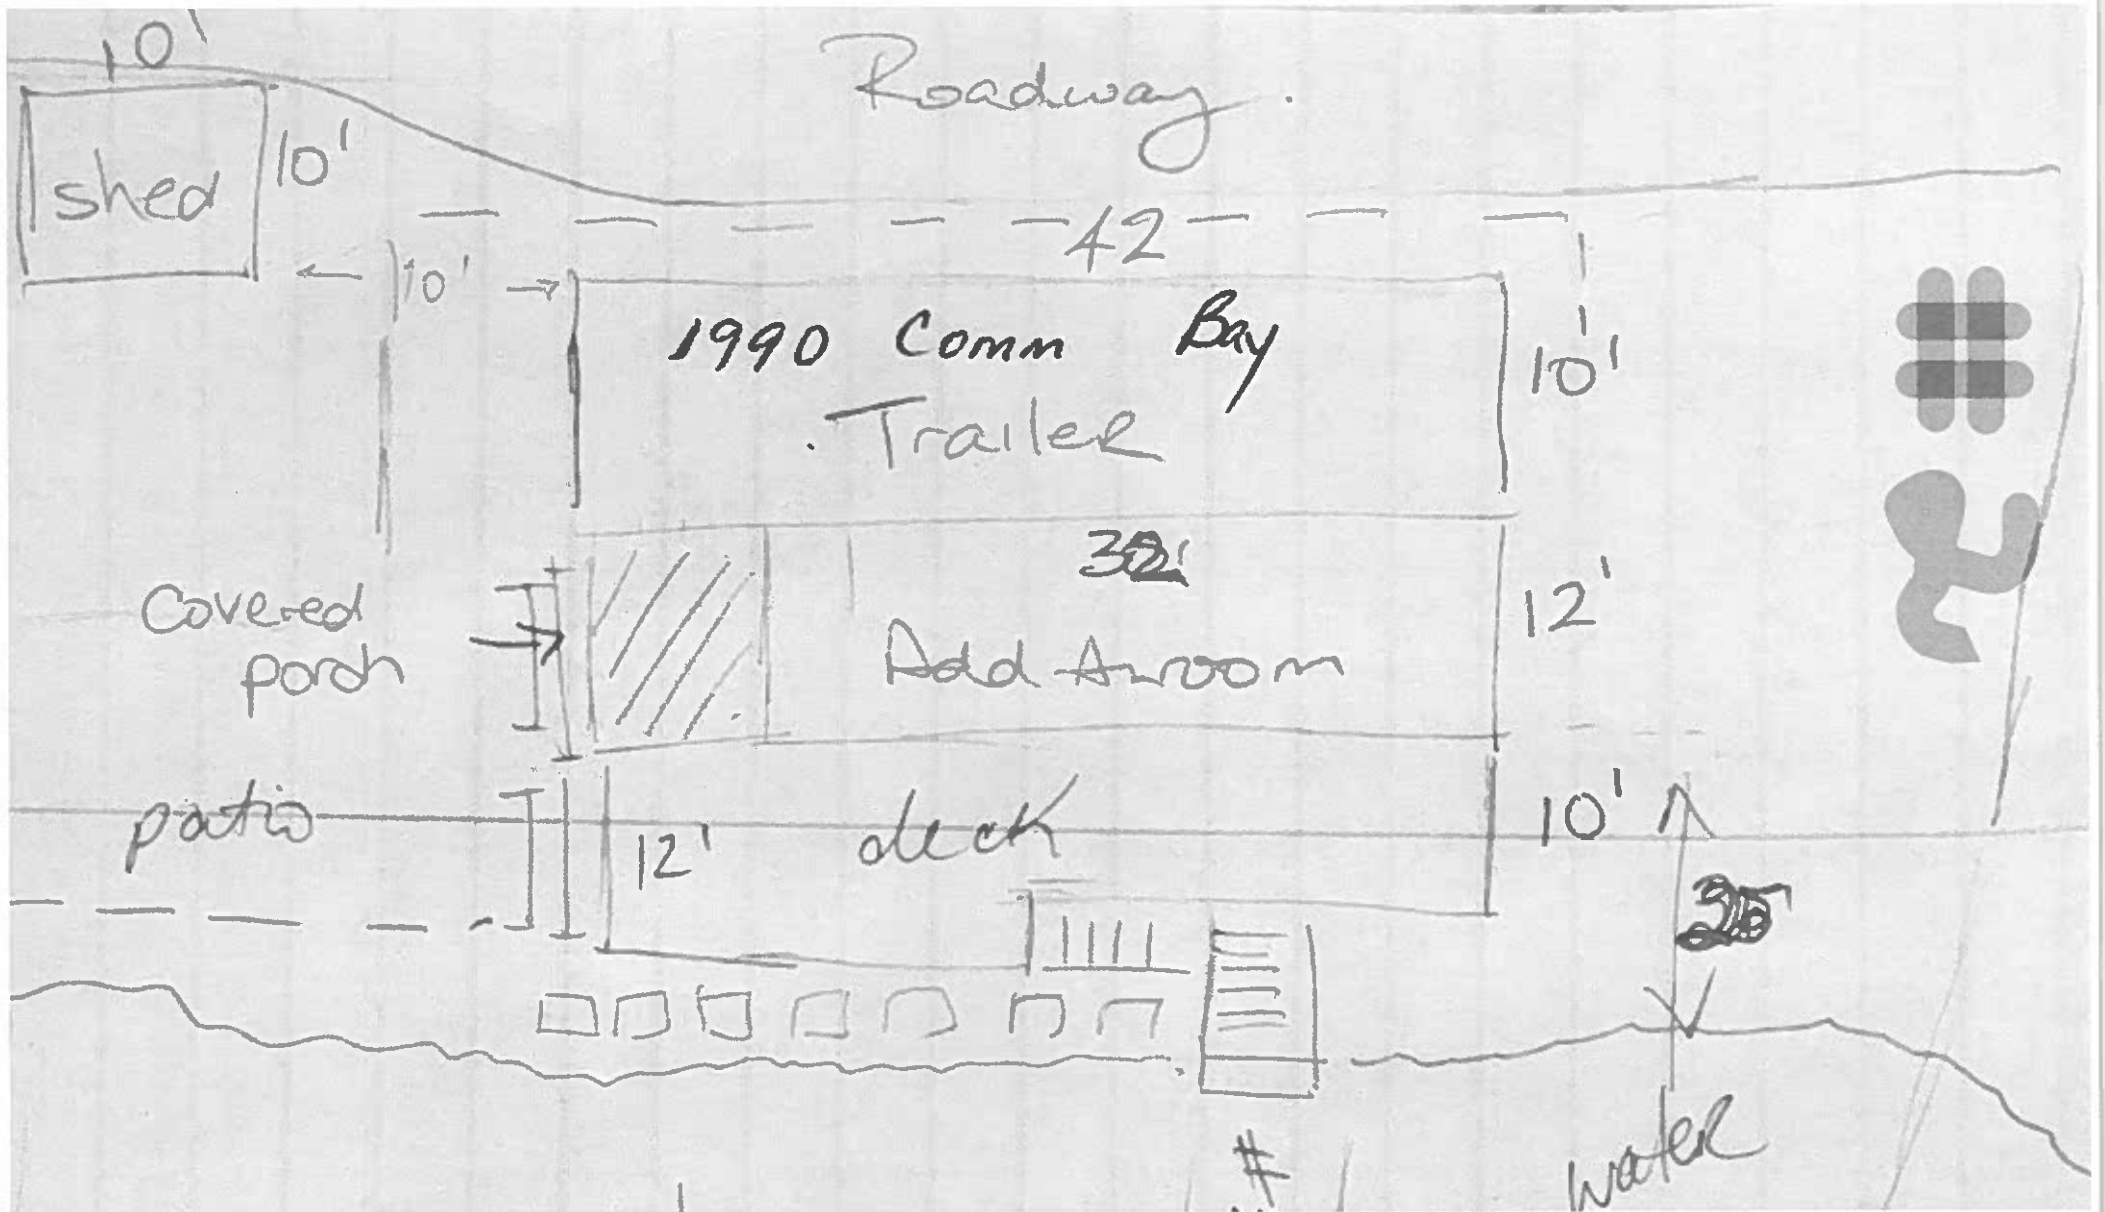 10'
Roadway.
10'
shed
42
10'
1990 Comm Bay
10'
Trailer
12'
Covered
porch
Add A room
patio
12'
deck
10'
#
water